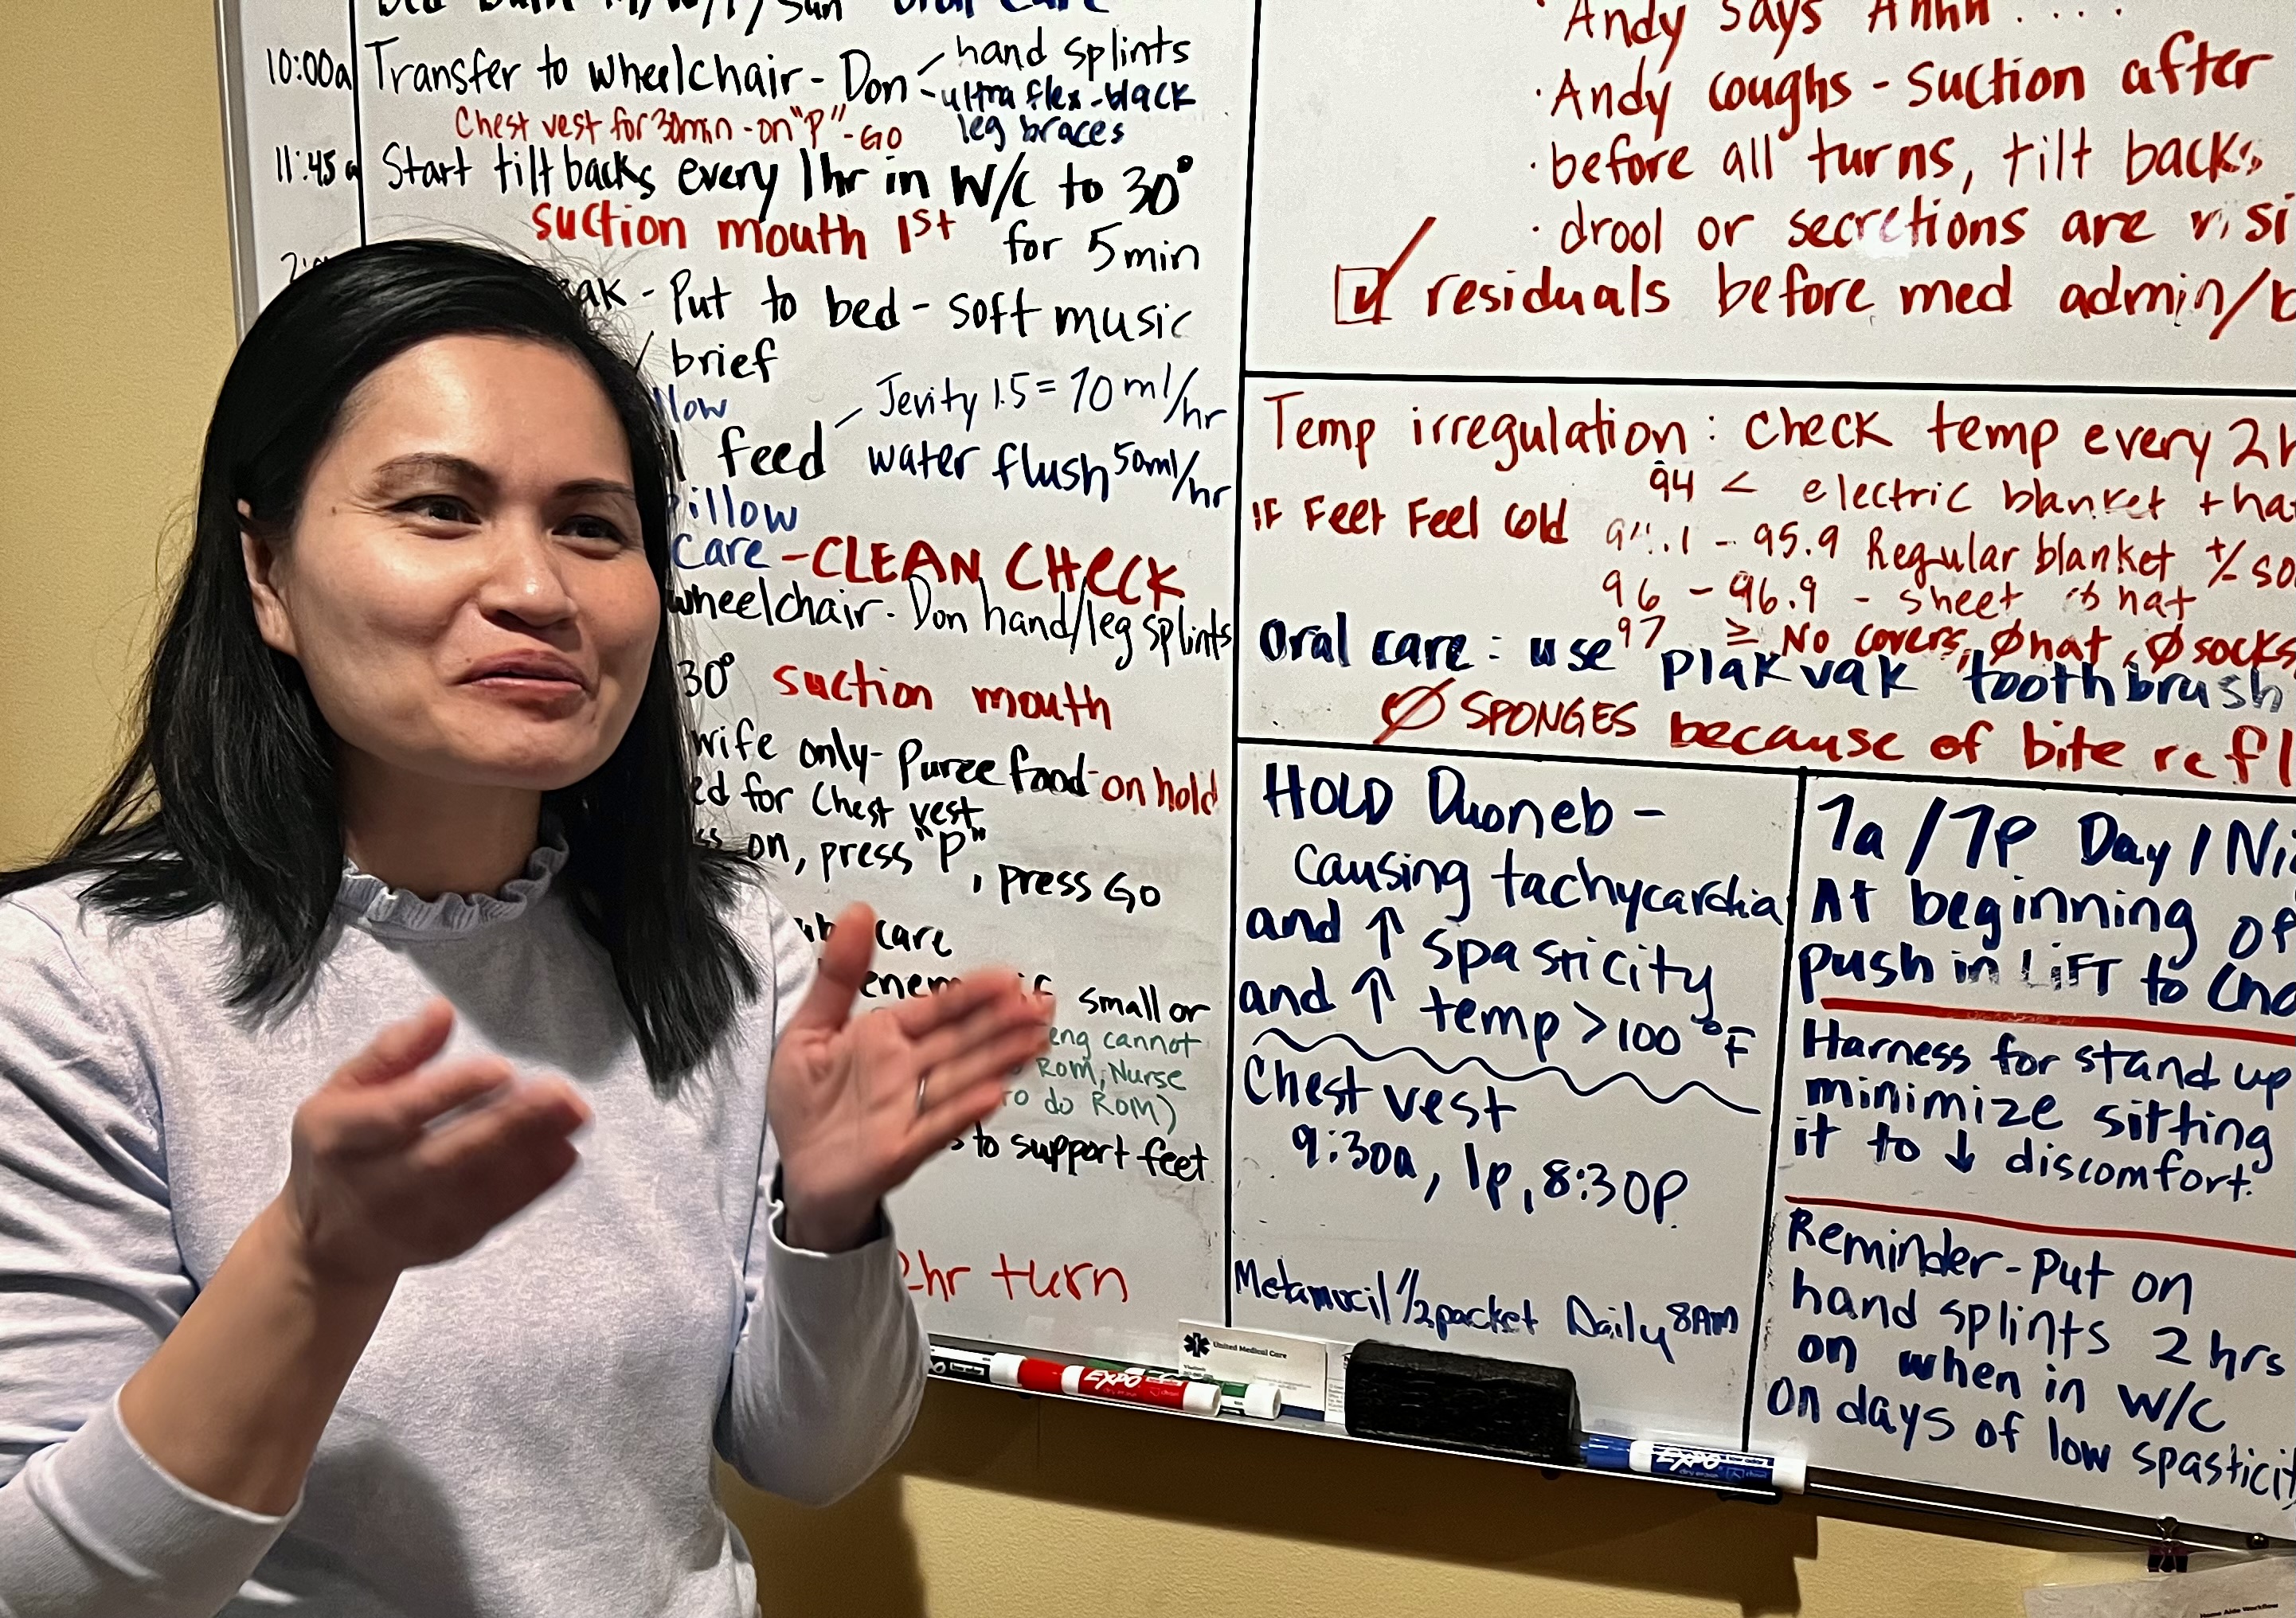 Bed Bath M/W/F/Sun oral care
10:00a Transfer to wheelchair - Don hand splints
ultra flex - black
leg braces
Chest vest for 30min - on "P" - GO
11:45a Start tilt backs every 1hr in W/C to 30°
suction mouth 1st for 5 min
- Put to bed - soft music
brief
Jevity 1.5 = 70 ml/hr
feed water flush 50ml/hr
pillow
care - CLEAN CHECK
wheelchair - Don hand/leg splints
30° suction mouth
wife only - Puree food - on hold
for Chest vest
on, press "P", press GO
care
if small or
cannot
ROM, Nurse
to do ROM)
to support feet
2hr turn
· Andy says Ahhh ....
· Andy coughs - suction after
· before all turns, tilt backs,
· drool or secretions are
residuals before med admin/
Temp irregulation: check temp every 2
94 < electric blanket +
IF Feet Feel cold 94.1 - 95.9 Regular blanket +/-
96 - 96.9 - sheet hat
97 ≥ No covers, Ø hat, Ø socks
oral care: use plak vak toothbrush
Ø SPONGES because of bite
HOLD Duoneb -
causing tachycardia
and ↑ spasticity
and ↑ temp > 100 °F
Chest vest
9:30a, 1p, 8:30p
Metamucil 1/2 packet Daily 8AM
7a / 7p Day /
At beginning of
push in LIFT to
Harness for stand up
minimize sitting
it to ↓ discomfort.
Reminder - Put on
hand splints 2 hrs
on when in W/C
on days of low
United Medical Care
EXPO
EXPO